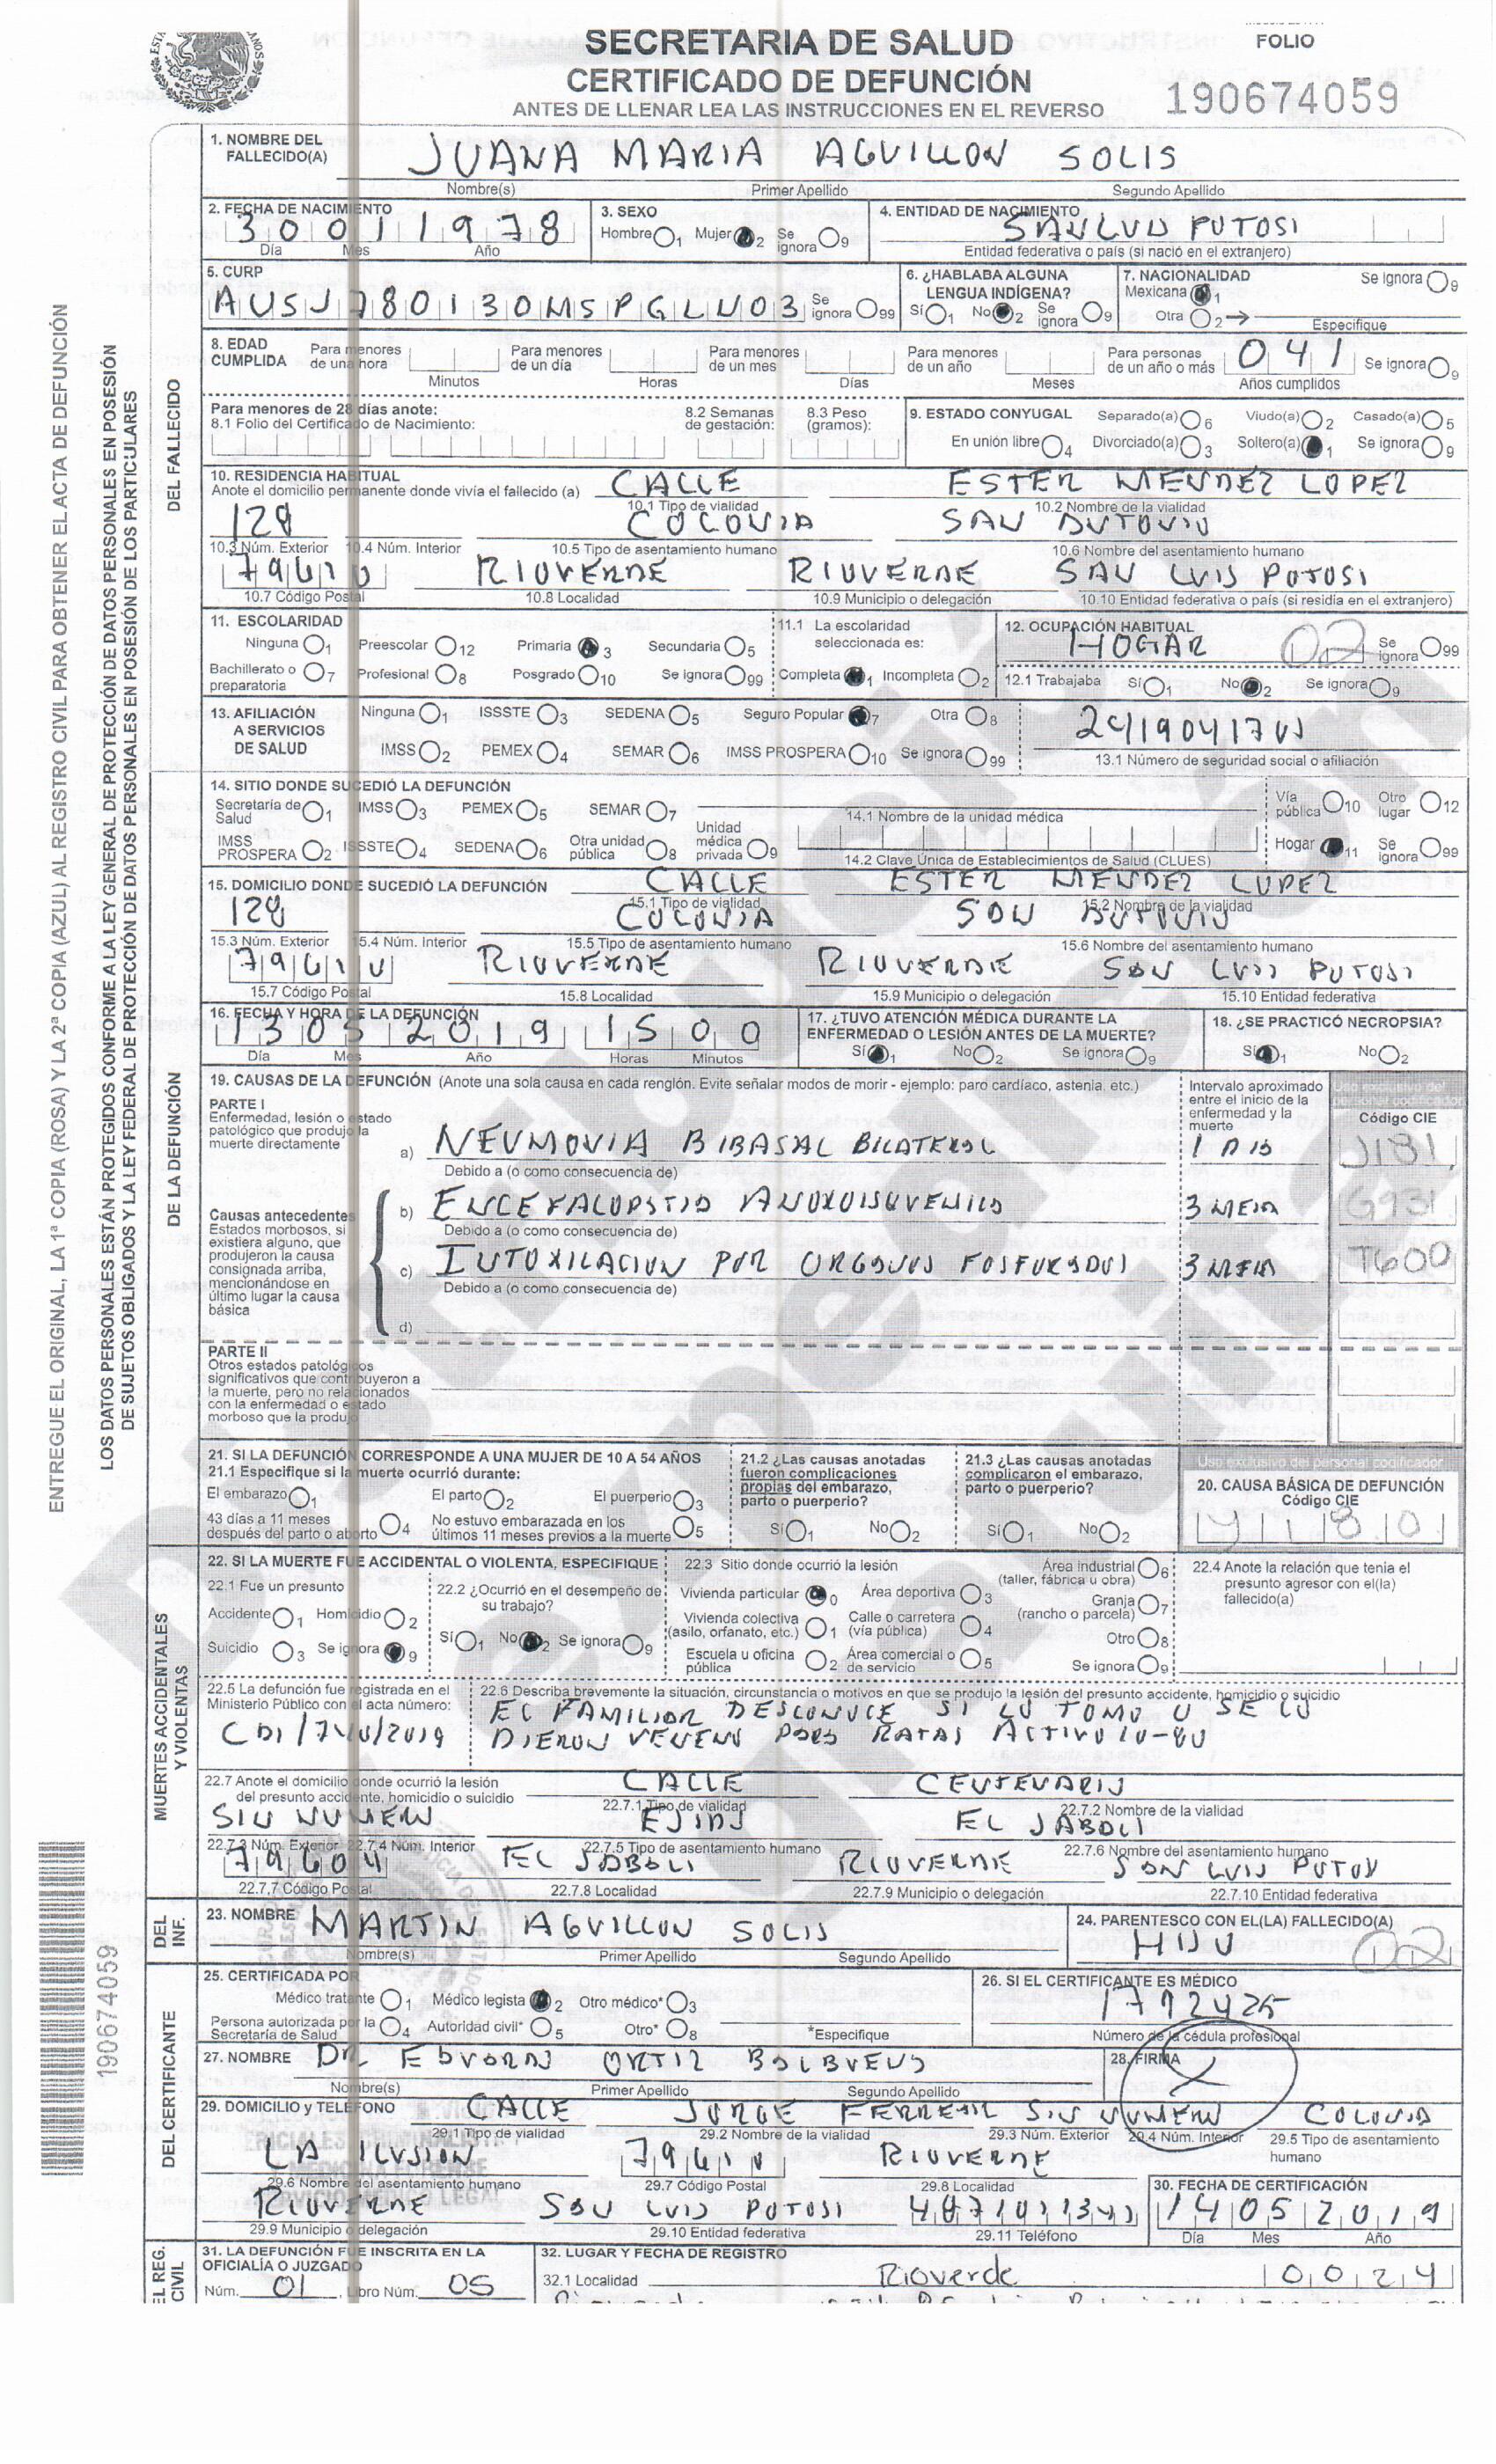 SECRETARIA DE SALUD
CERTIFICADO DE DEFUNCIÓN
ANTES DE LLENAR LEA LAS INSTRUCCIONES EN EL REVERSO
FOLIO
190674059
ENTREGUE EL ORIGINAL, LA 1ª COPIA (ROSA) Y LA 2ª COPIA (AZUL) AL REGISTRO CIVIL PARA OBTENER EL ACTA DE DEFUNCIÓN
LOS DATOS PERSONALES ESTÁN PROTEGIDOS CONFORME A LA LEY GENERAL DE PROTECCIÓN DE DATOS PERSONALES EN POSESIÓN
DE SUJETOS OBLIGADOS Y LA LEY FEDERAL DE PROTECCIÓN DE DATOS PERSONALES EN POSESIÓN DE LOS PARTICULARES
DEL FALLECIDO
1. NOMBRE DEL FALLECIDO(A) JUANA MARIA AGUILLON SOLIS
Nombre(s) Primer Apellido Segundo Apellido
2. FECHA DE NACIMIENTO 30 01 1978
Día Mes Año
3. SEXO
Hombre 1 Mujer 2 Se ignora 9
4. ENTIDAD DE NACIMIENTO SAN LUIS POTOSI
Entidad federativa o país (si nació en el extranjero)
5. CURP
AUSJ780130MSPGLN03 Se ignora 99
6. ¿HABLABA ALGUNA LENGUA INDÍGENA?
Sí 1 No 2 Se ignora 9
7. NACIONALIDAD Se ignora 9
Mexicana 1
Otra 2 Especifique
8. EDAD CUMPLIDA
Para menores de una hora Minutos
Para menores de un día Horas
Para menores de un mes Días
Para menores de un año Meses
Para personas de un año o más 041 Años cumplidos Se ignora 9
Para menores de 28 días anote:
8.1 Folio del Certificado de Nacimiento:
8.2 Semanas de gestación:
8.3 Peso (gramos):
9. ESTADO CONYUGAL Separado(a) 6 Viudo(a) 2 Casado(a) 5
En unión libre 4 Divorciado(a) 3 Soltero(a) 1 Se ignora 9
10. RESIDENCIA HABITUAL
Anote el domicilio permanente donde vivía el fallecido (a) CALLE ESTER MENDEZ LOPEZ
10.1 Tipo de vialidad 10.2 Nombre de la vialidad
128 COLONIA SAN ANTONIO
10.3 Núm. Exterior 10.4 Núm. Interior 10.5 Tipo de asentamiento humano 10.6 Nombre del asentamiento humano
79610 RIOVERDE RIOVERDE SAN LUIS POTOSI
10.7 Código Postal 10.8 Localidad 10.9 Municipio o delegación 10.10 Entidad federativa o país (si residía en el extranjero)
11. ESCOLARIDAD
Ninguna 1 Preescolar 12 Primaria 3 Secundaria 5
Bachillerato o preparatoria 7 Profesional 8 Posgrado 10 Se ignora 99
11.1 La escolaridad seleccionada es:
Completa 1 Incompleta 2
12. OCUPACIÓN HABITUAL
HOGAR 02 Se ignora 99
12.1 Trabajaba Sí 1 No 2 Se ignora 9
13. AFILIACIÓN A SERVICIOS DE SALUD
Ninguna 1 ISSSTE 3 SEDENA 5 Seguro Popular 7 Otra 8
IMSS 2 PEMEX 4 SEMAR 6 IMSS PROSPERA 10 Se ignora 99
13.1 Número de seguridad social o afiliación
DE LA DEFUNCIÓN
14. SITIO DONDE SUCEDIÓ LA DEFUNCIÓN
Secretaría de Salud 1 IMSS 3 PEMEX 5 SEMAR 7
IMSS PROSPERA 2 ISSSTE 4 SEDENA 6 Otra unidad pública 8 Unidad médica privada 9
14.1 Nombre de la unidad médica
14.2 Clave Única de Establecimientos de Salud (CLUES)
Vía pública 10 Otro lugar 12
Hogar 11 Se ignora 99
15. DOMICILIO DONDE SUCEDIÓ LA DEFUNCIÓN CALLE ESTER MENDEZ LOPEZ
15.1 Tipo de vialidad 15.2 Nombre de la vialidad
128 COLONIA SAN ANTONIO
15.3 Núm. Exterior 15.4 Núm. Interior 15.5 Tipo de asentamiento humano 15.6 Nombre del asentamiento humano
79610 RIOVERDE RIOVERDE SAN LUIS POTOSI
15.7 Código Postal 15.8 Localidad 15.9 Municipio o delegación 15.10 Entidad federativa
16. FECHA Y HORA DE LA DEFUNCIÓN
13 05 2019 15 00
Día Mes Año Horas Minutos
17. ¿TUVO ATENCIÓN MÉDICA DURANTE LA ENFERMEDAD O LESIÓN ANTES DE LA MUERTE?
Sí 1 No 2 Se ignora 9
18. ¿SE PRACTICÓ NECROPSIA?
Sí 1 No 2
19. CAUSAS DE LA DEFUNCIÓN (Anote una sola causa en cada renglón. Evite señalar modos de morir - ejemplo: paro cardíaco, astenia, etc.)
Intervalo aproximado entre el inicio de la enfermedad y la muerte
Uso exclusivo del personal codificador
Código CIE
PARTE I
Enfermedad, lesión o estado patológico que produjo la muerte directamente
a) NEUMONIA BIBASAL BILATERAL 1 DIA J181
Debido a (o como consecuencia de)
Causas antecedentes
Estados morbosos, si existiera alguno, que produjeron la causa consignada arriba, mencionándose en último lugar la causa básica
b) ENCEFALOPATIA 3 MESES G931
Debido a (o como consecuencia de)
c) INTOXICACION POR ORGANOS FOSFORADOS 3 MESES T600
Debido a (o como consecuencia de)
d)
PARTE II
Otros estados patológicos significativos que contribuyeron a la muerte, pero no relacionados con la enfermedad o estado morboso que la produjo
21. SI LA DEFUNCIÓN CORRESPONDE A UNA MUJER DE 10 A 54 AÑOS
21.1 Especifique si la muerte ocurrió durante:
El embarazo 1 El parto 2 El puerperio 3
43 días a 11 meses después del parto o aborto 4 No estuvo embarazada en los últimos 11 meses previos a la muerte 5
21.2 ¿Las causas anotadas fueron complicaciones propias del embarazo, parto o puerperio?
Sí 1 No 2
21.3 ¿Las causas anotadas complicaron el embarazo, parto o puerperio?
Sí 1 No 2
Uso exclusivo del personal codificador
20. CAUSA BÁSICA DE DEFUNCIÓN
Código CIE
Y180
MUERTES ACCIDENTALES Y VIOLENTAS
22. SI LA MUERTE FUE ACCIDENTAL O VIOLENTA, ESPECIFIQUE
22.1 Fue un presunto
Accidente 1 Homicidio 2
Suicidio 3 Se ignora 9
22.2 ¿Ocurrió en el desempeño de su trabajo?
Sí 1 No 2 Se ignora 9
22.3 Sitio donde ocurrió la lesión
Vivienda particular 0 Área deportiva 3 Área industrial (taller, fábrica u obra) 6
Vivienda colectiva (asilo, orfanato, etc.) 1 Calle o carretera (vía pública) 4 Granja (rancho o parcela) 7
Otro 8
Escuela u oficina pública 2 Área comercial o de servicio 5 Se ignora 9
22.4 Anote la relación que tenia el presunto agresor con el(la) fallecido(a)
22.5 La defunción fue registrada en el Ministerio Público con el acta número:
CDI/740/2019
22.6 Describa brevemente la situación, circunstancia o motivos en que se produjo la lesión del presunto accidente, homicidio o suicidio
EL FAMILIAR DESCONOCE SI LO TOMO O SE LO
DIERON VENENO PARA RATAS ACTIVO 10-80
22.7 Anote el domicilio donde ocurrió la lesión del presunto accidente, homicidio o suicidio CALLE CENTENARIO
22.7.1 Tipo de vialidad 22.7.2 Nombre de la vialidad
SIN NUMERO EJIDO EL JABALI
22.7.3 Núm. Exterior 22.7.4 Núm. Interior 22.7.5 Tipo de asentamiento humano 22.7.6 Nombre del asentamiento humano
79604 EL JABALI RIOVERDE SAN LUIS POTOSI
22.7.7 Código Postal 22.7.8 Localidad 22.7.9 Municipio o delegación 22.7.10 Entidad federativa
DEL INF.
23. NOMBRE MARTIN AGUILLON SOLIS
Nombre(s) Primer Apellido Segundo Apellido
24. PARENTESCO CON EL(LA) FALLECIDO(A)
HIJO 02
DEL CERTIFICANTE
25. CERTIFICADA POR
Médico tratante 1 Médico legista 2 Otro médico* 3
Persona autorizada por la Secretaría de Salud 4 Autoridad civil* 5 Otro* 8 *Especifique
26. SI EL CERTIFICANTE ES MÉDICO
1772425
Número de la cédula profesional
27. NOMBRE DR EDUARDO ORTIZ BALBUENA
Nombre(s) Primer Apellido Segundo Apellido
28. FIRMA
29. DOMICILIO y TELÉFONO CALLE JORGE FERRETIZ SIN NUMERO COLONIA
29.1 Tipo de vialidad 29.2 Nombre de la vialidad 29.3 Núm. Exterior 29.4 Núm. Interior 29.5 Tipo de asentamiento humano
LA ILUSION 79610 RIOVERDE
29.6 Nombre del asentamiento humano 29.7 Código Postal 29.8 Localidad
RIOVERDE SAN LUIS POTOSI
29.9 Municipio o delegación 29.10 Entidad federativa 29.11 Teléfono
30. FECHA DE CERTIFICACIÓN
14 05 2019
Día Mes Año
EL REG. CIVIL
31. LA DEFUNCIÓN FUE INSCRITA EN LA OFICIALÍA O JUZGADO
Núm. 01 Libro Núm. 05
32. LUGAR Y FECHA DE REGISTRO
32.1 Localidad Rioverde 10024
190674059
Distribución y expedición gratuita